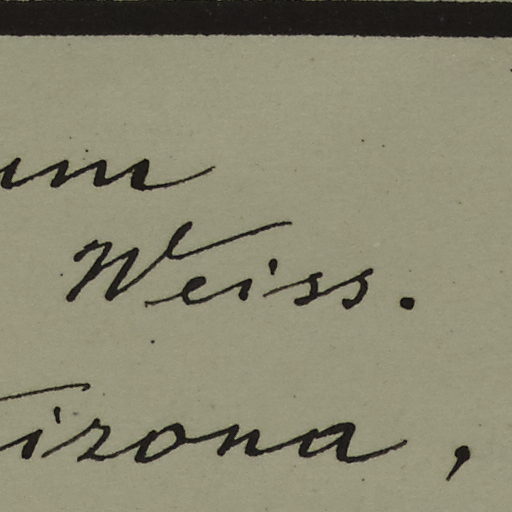 um
Weiss.
rizona,